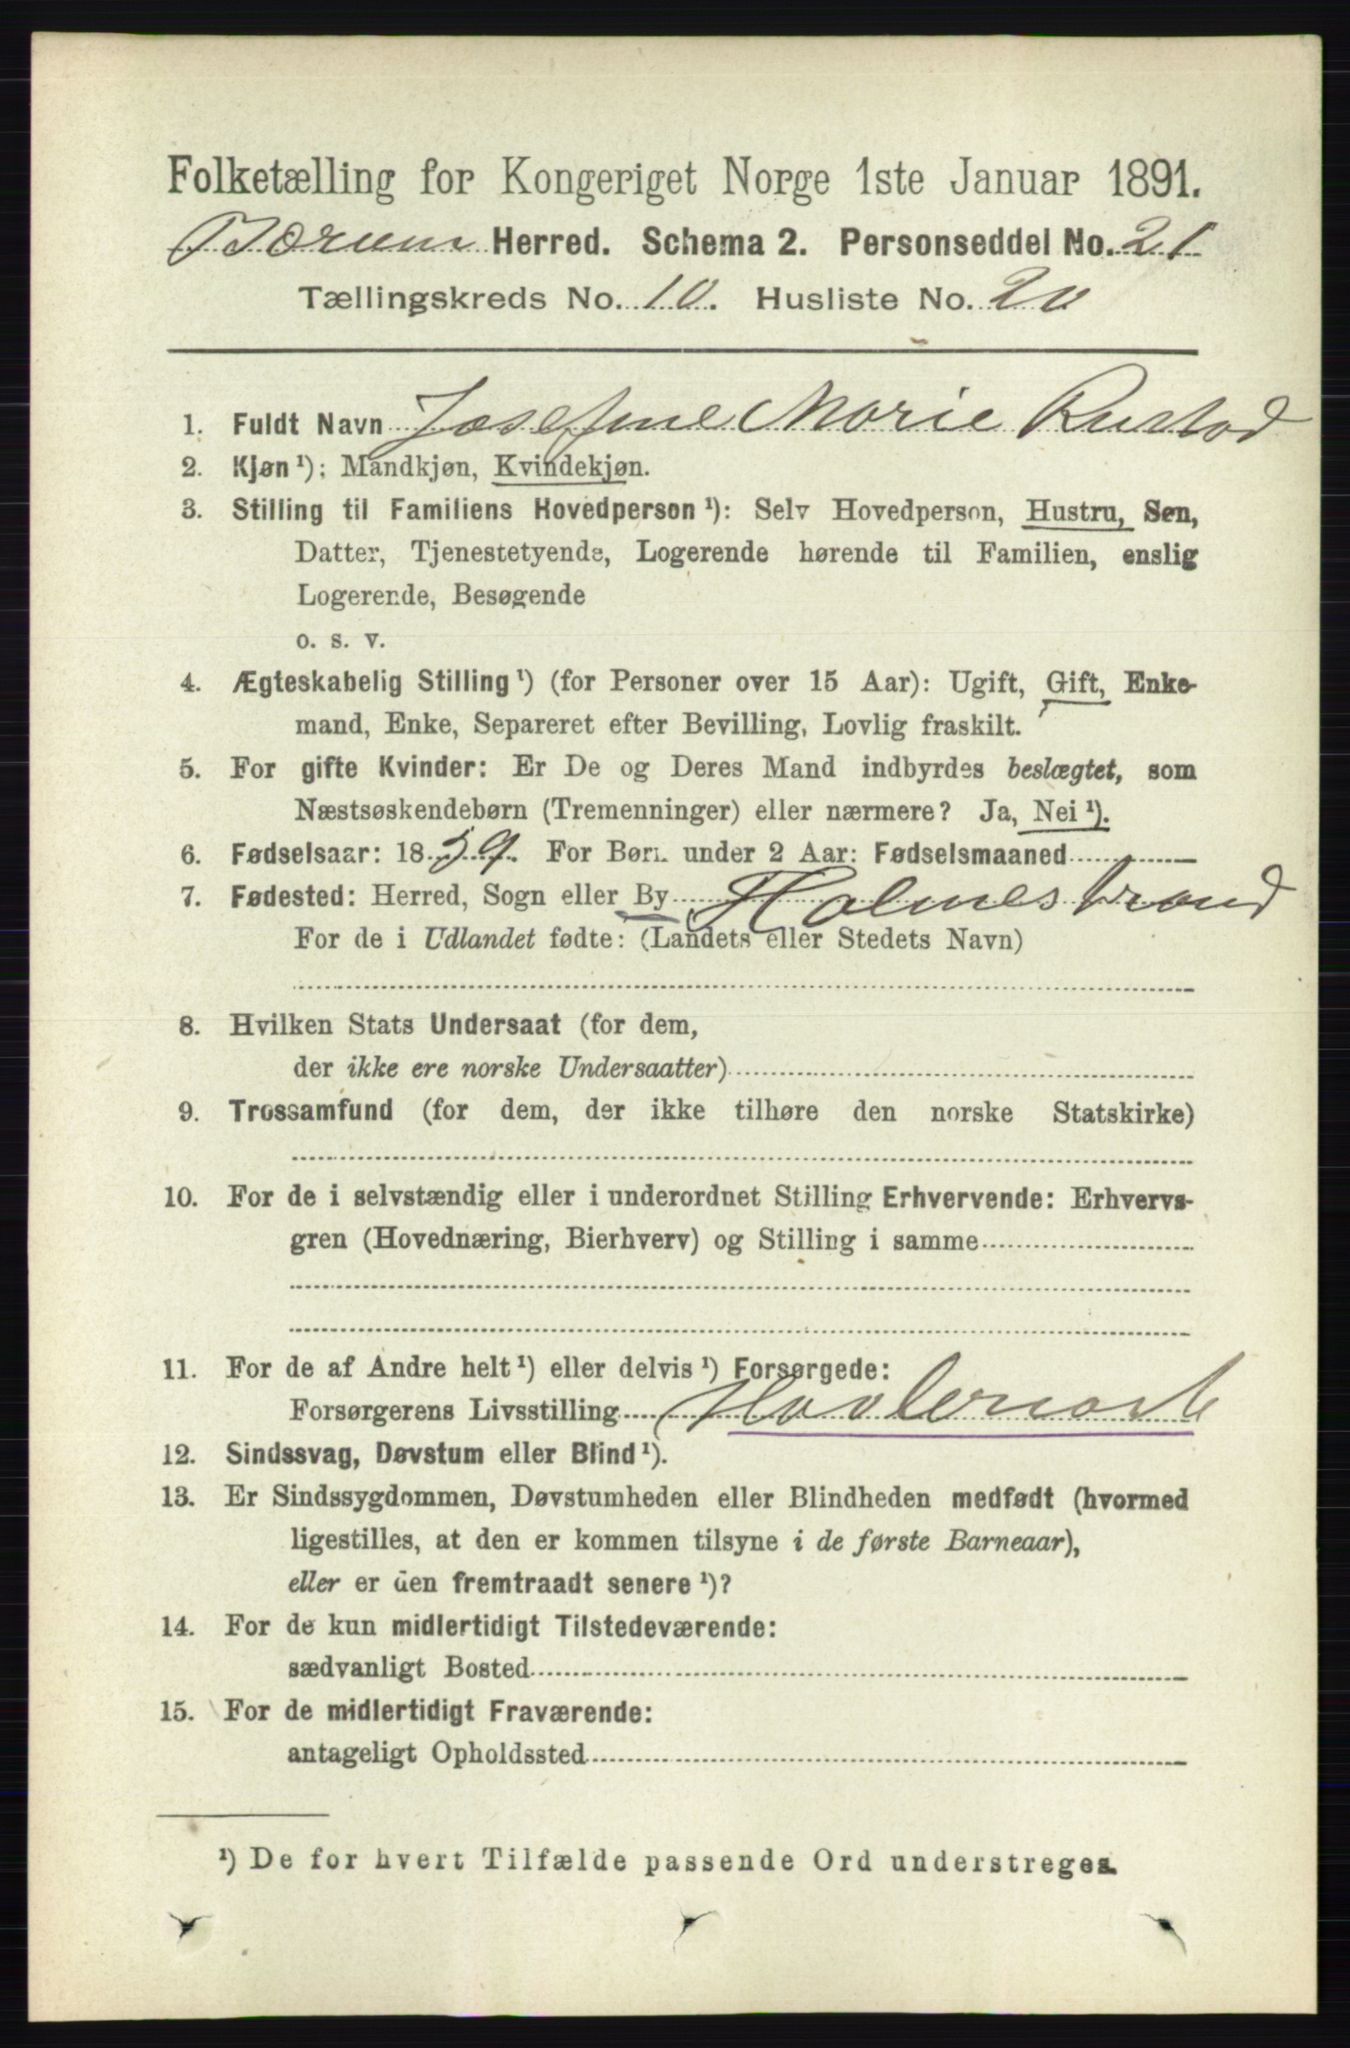 Folketælling for Kongeriget Norge 1ste Januar 1891.
Bærum Herred. Schema 2. Personseddel No. 21
Tællingskreds No. 10. Husliste No. 20
1. Fuldt Navn Josefine Marie Rustad
2. Kjøn ¹): Mandkjøn, Kvindekjøn.
3. Stilling til Familiens Hovedperson ¹): Selv Hovedperson, Hustru, Søn,
Datter, Tjenestetyende, Logerende hørende til Familien, enslig
Logerende, Besøgende
o. s. v.
4. Ægteskabelig Stilling ¹) (for Personer over 15 Aar): Ugift, Gift, Enke-
mand, Enke, Separeret efter Bevilling, Lovlig fraskilt.
5. For gifte Kvinder: Er De og Deres Mand indbyrdes beslægtet, som
Næstsøskendebørn (Tremenninger) eller nærmere? Ja, Nei ¹).
6. Fødselsaar: 1859. For Børn under 2 Aar: Fødselsmaaned
7. Fødested: Herred, Sogn eller By Holmestrand
For de i Udlandet fødte: (Landets eller Stedets Navn)
8. Hvilken Stats Undersaat (for dem,
der ikke ere norske Undersaatter)
9. Trossamfund (for dem, der ikke tilhøre den norske Statskirke)
10. For de i selvstændig eller i underordnet Stilling Erhvervende: Erhvervs-
gren (Hovednæring, Bierhverv) og Stilling i samme
11. For de af Andre helt ¹) eller delvis ¹) Forsørgede:
Forsørgerens Livsstilling
12. Sindssvag, Døvstum eller Blind ¹).
13. Er Sindssygdommen, Døvstumheden eller Blindheden medfødt (hvormed
ligestilles, at den er kommen tilsyne i de første Barneaar),
eller er den fremtraadt senere ¹)?
14. For de kun midlertidigt Tilstedeværende:
sædvanligt Bosted
15. For de midlertidigt Fraværende:
antageligt Opholdssted
¹) De for hvert Tilfælde passende Ord understreges.